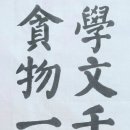 學文千
貪物一